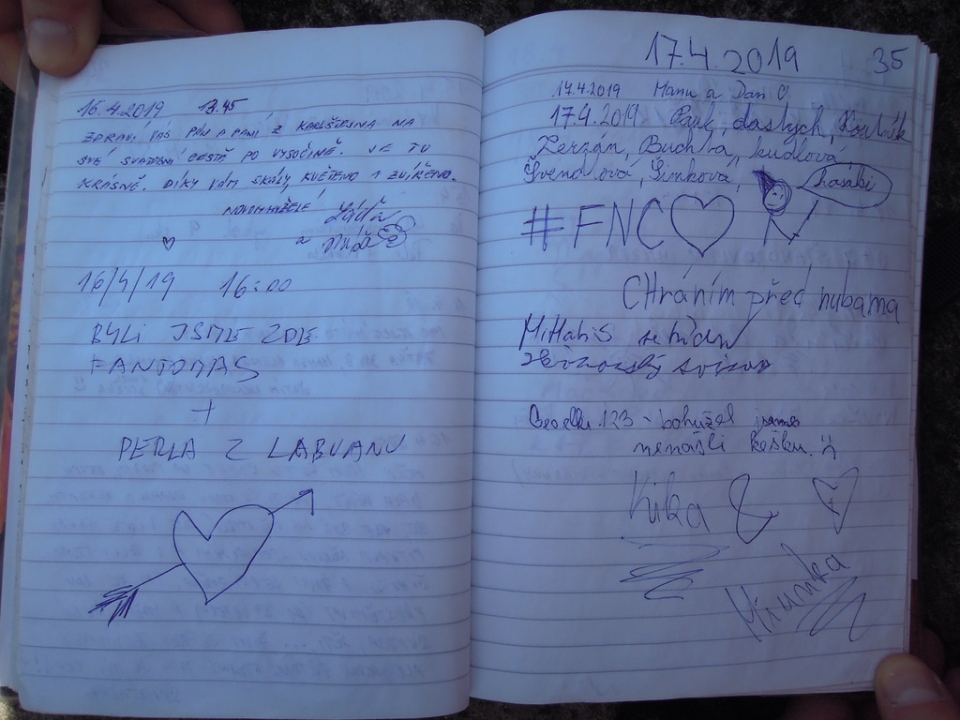 16.4.2019 13.45
ZDRAVÍ VÁS PÁN A PANÍ Z KARLŠTEJNA NA
SVÉ SVATEBNÍ CESTĚ PO VYSOČINĚ. JE TU
KRÁSNĚ. DÍKY VÁM SKÁLY, KVĚTENO I ZVÍŘENO.
NOVOMANŽELÉ
a
16/4/19 16:00
BYLI JSME ZDE
FANTOMAS
+
PERLA Z LABUANU
17.4.2019 35
17.4.2019 Hanu a Dan
17.4.2019 Pauk, dastych, Koutník
Zerzán, Buchta, kudlová,
Švendová, Šimková,
hasábi
#FNC
CHráním před hubama
se hídem
Geoelku.123 - bohužel jsmes
nenašli kešku.
Kika &
Mirunka